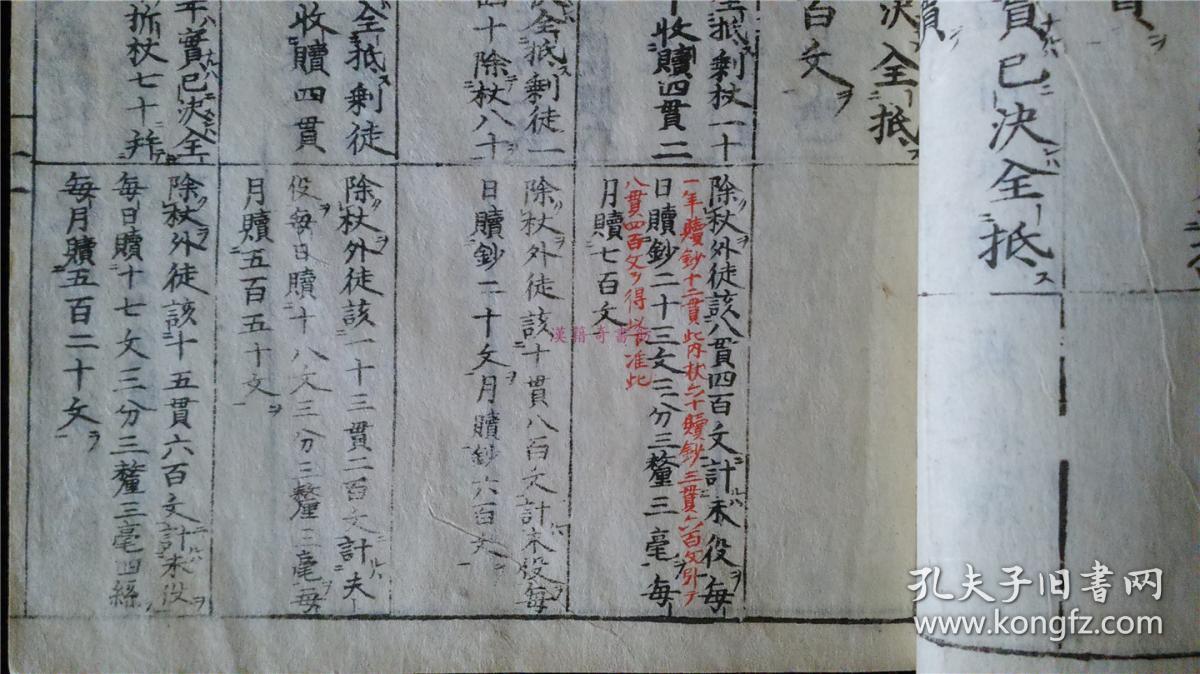 實已決全抵ス
贖
決全抵
百文ヲ
全抵剩杖一十
收贖四貫二
除杖外徒該八貫四百文計未役每
一年贖鈔十二貫此內杖六十贖鈔三貫六百文引テ
日贖鈔二十三文三分三釐三毫每
八貫四百文ヲ得以下准此
月贖七百文
全抵剩徒一
四十除杖八十
除杖外徒該十貫八百文計未役每
日贖鈔二十文月贖鈔六百文
全抵剩徒
收贖四貫
除杖外徒該一十三貫二百文計夫
役每日贖十八文三分三釐三毫每
月贖五百五十文
年實已決全
折杖七十并
除杖外徒該十五貫六百文計未役
每日贖十七文三分三釐三毫四絲
每月贖五百二十文
漢籍奇書
孔夫子旧书网
www.kongfz.com